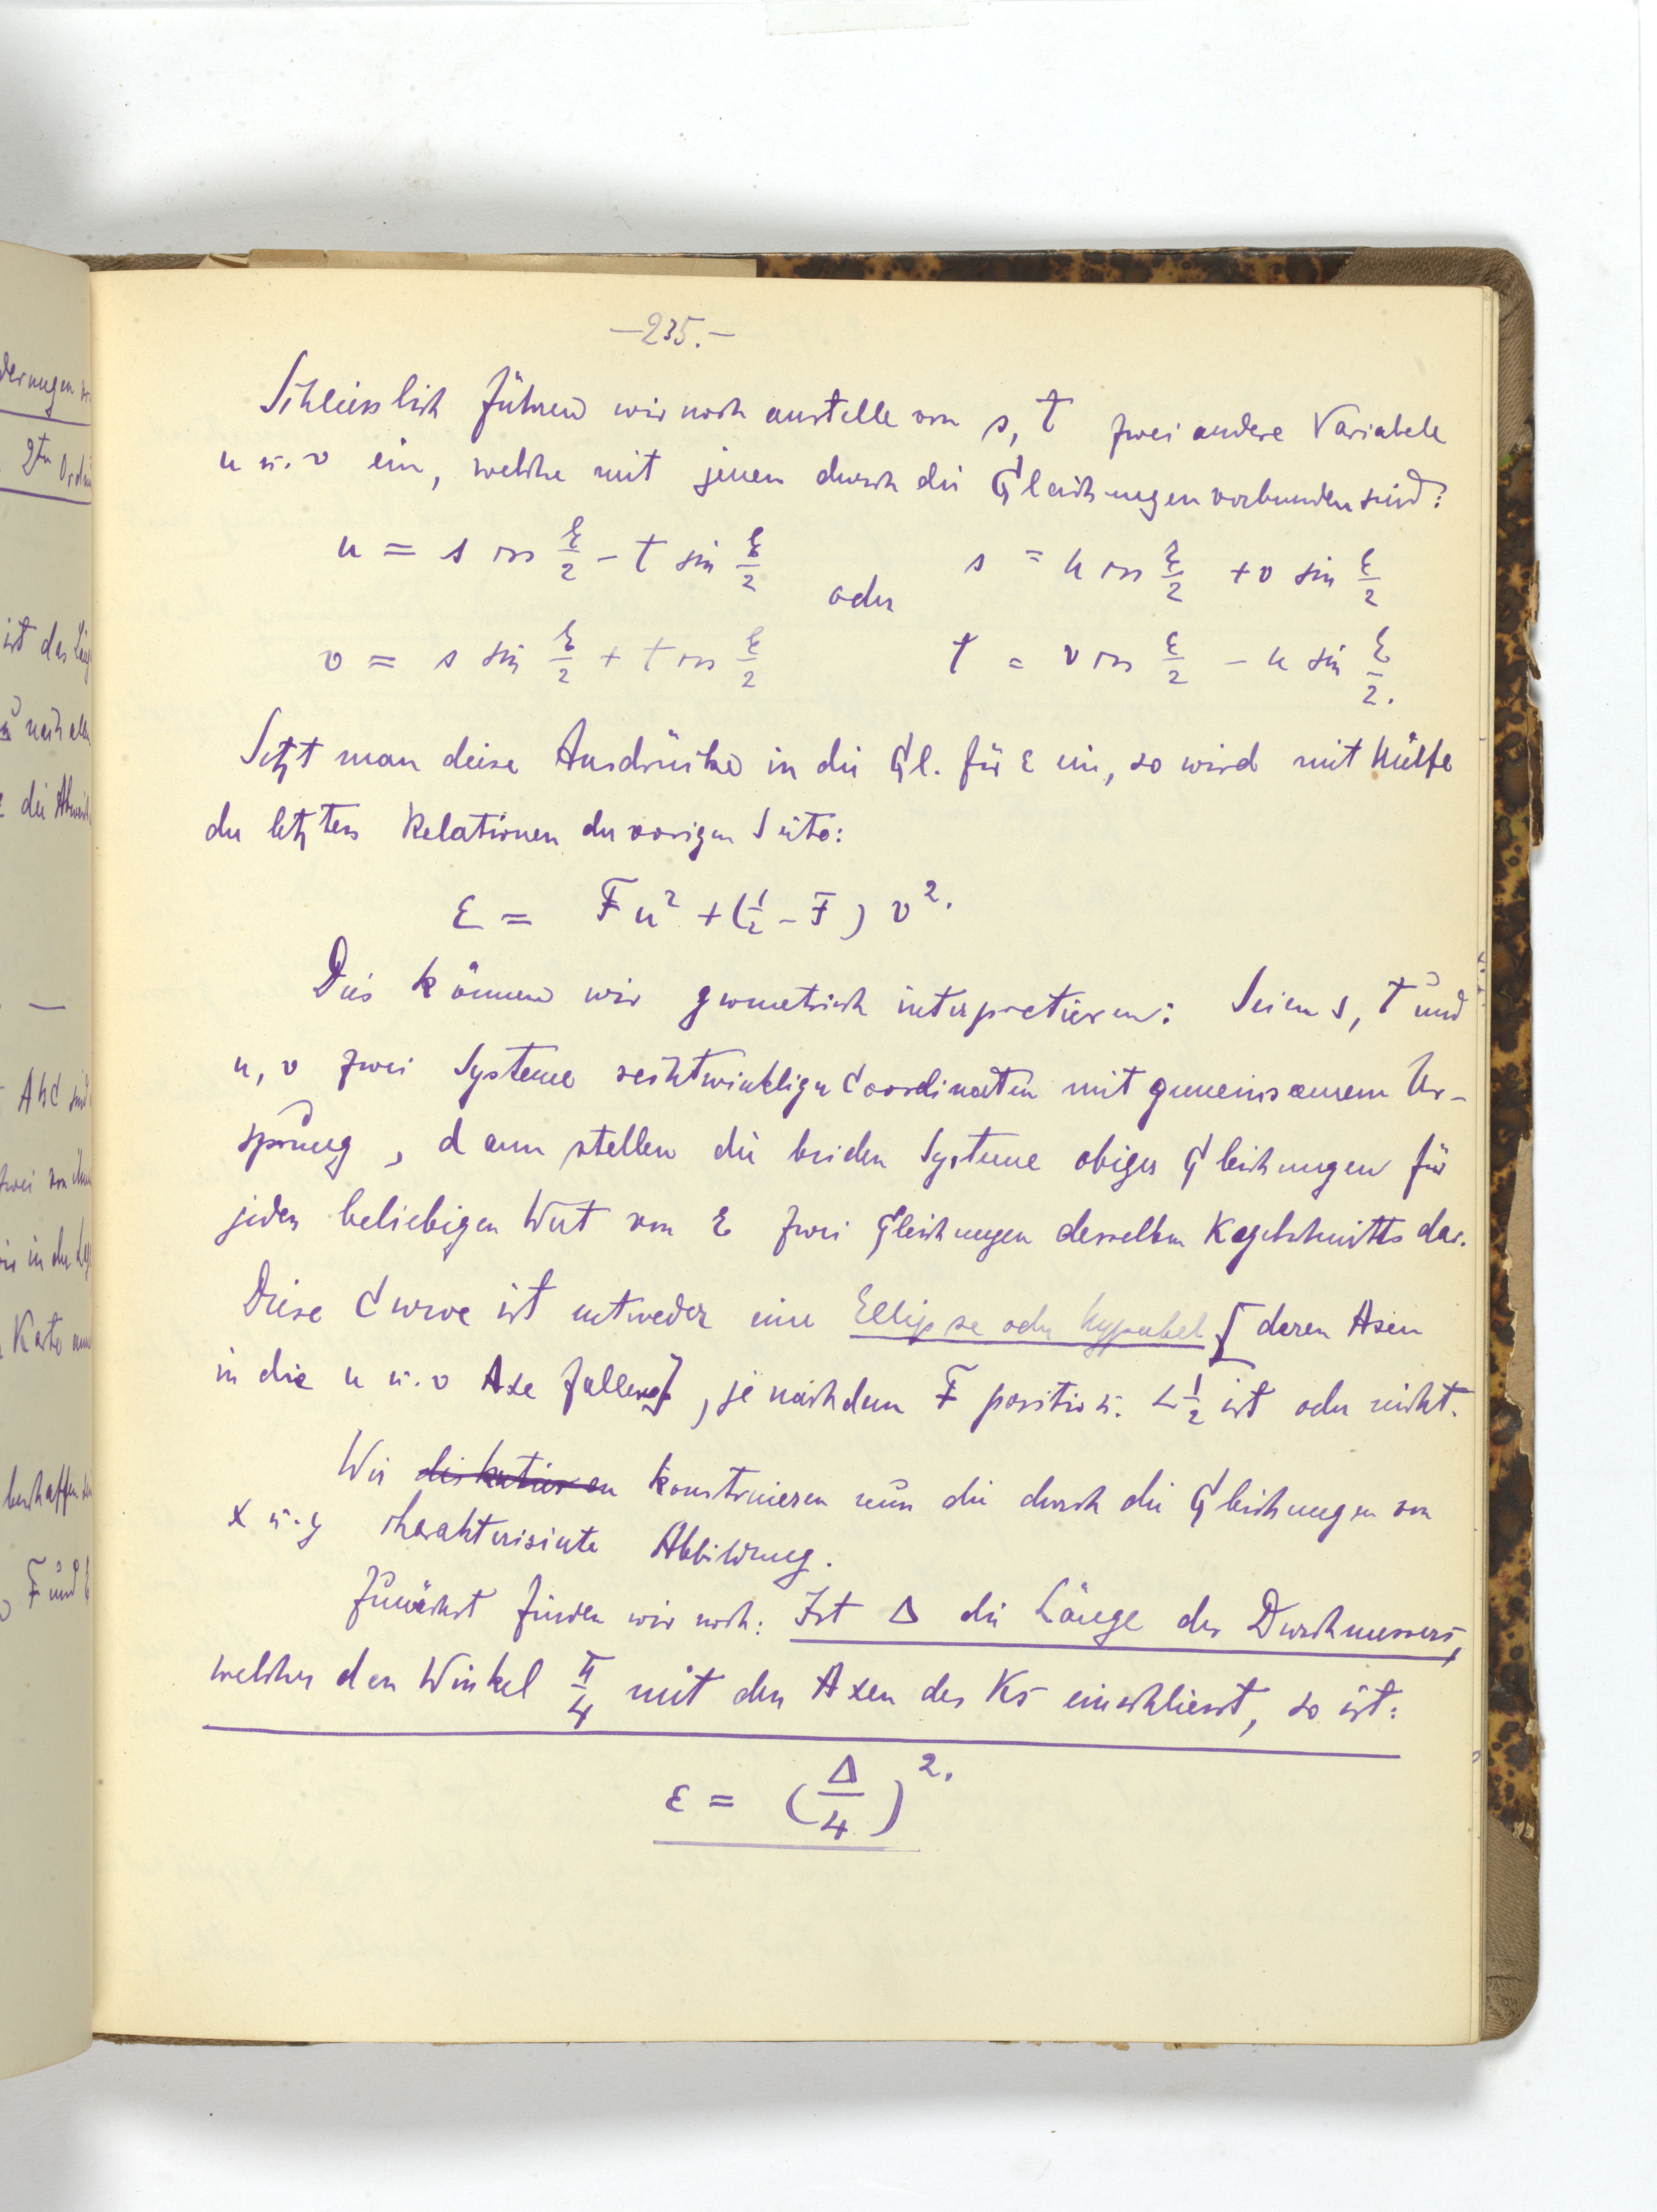 dernugen v
2ter Ordn
ist des Läng
nach allen
die Abweich
ABC sind
zwei von ihnen
wir in der Lage
Karte
beschaffen
F und
—235.—
Schliesslich führen wir noch anstelle von s, t zwei andere Variabele
u u. v ein, welche mit jenen durch die Gleichungen verbunden sind:
u = s cos ξ/2 − t sin ξ/2 oder s = u cos ξ/2 + v sin ξ/2
v = s sin ξ/2 + t cos ξ/2 t = v cos ξ/2 − u sin ξ/2.
Setzt man diese Ausdrücke in die Gl. für ε ein, so wird mit Hülfe
der letzten Relationen der vorigen Seite:
ε = F u² + (1/2 − F) v².
Dies können wir geometrisch interpretieren: Seien s, t und
u, v zwei Systeme rechtwinkliger Coordinaten mit gemeinsamem Ur-
sprung, dann stellen die beiden Systeme obiger Gleichungen für
jeden beliebigen Wert von ε zwei Gleichungen desselben Kegelschnitts dar.
Diese Curve ist entweder eine Ellipse oder Hyperbel [deren Axen
in die u u. v Axe fallen], je nachdem F positiv u. < 1/2 ist oder nicht.
Wir diskutieren konstruieren nun die durch die Gleichungen von
x u. y charakterisierte Abbildung.
Zunächst finden wir noch: Ist Δ die Länge des Durchmessers,
welcher den Winkel π/4 mit den Axen des KS einschliesst, so ist:
ε = (Δ/4)².